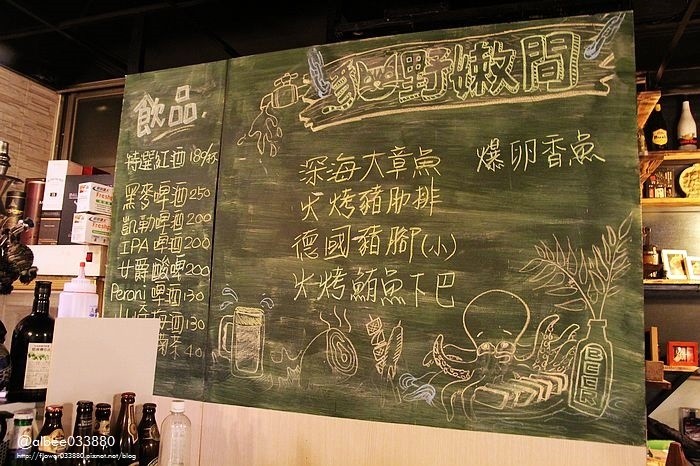 飲品
特選紅酒 189/杯
黑麥啤酒 250
凱勒啤酒 200
IPA 啤酒 200
女爵酸啤 200
Peroni 啤酒 130
梅酒 130
菊茶 40
野嫩間
深海大章魚
火烤豬肋排
德國豬腳(小)
火烤鮪魚下巴
爆卵香魚
BEER
@albee033880
http://flower033880.pixnet.net/blog